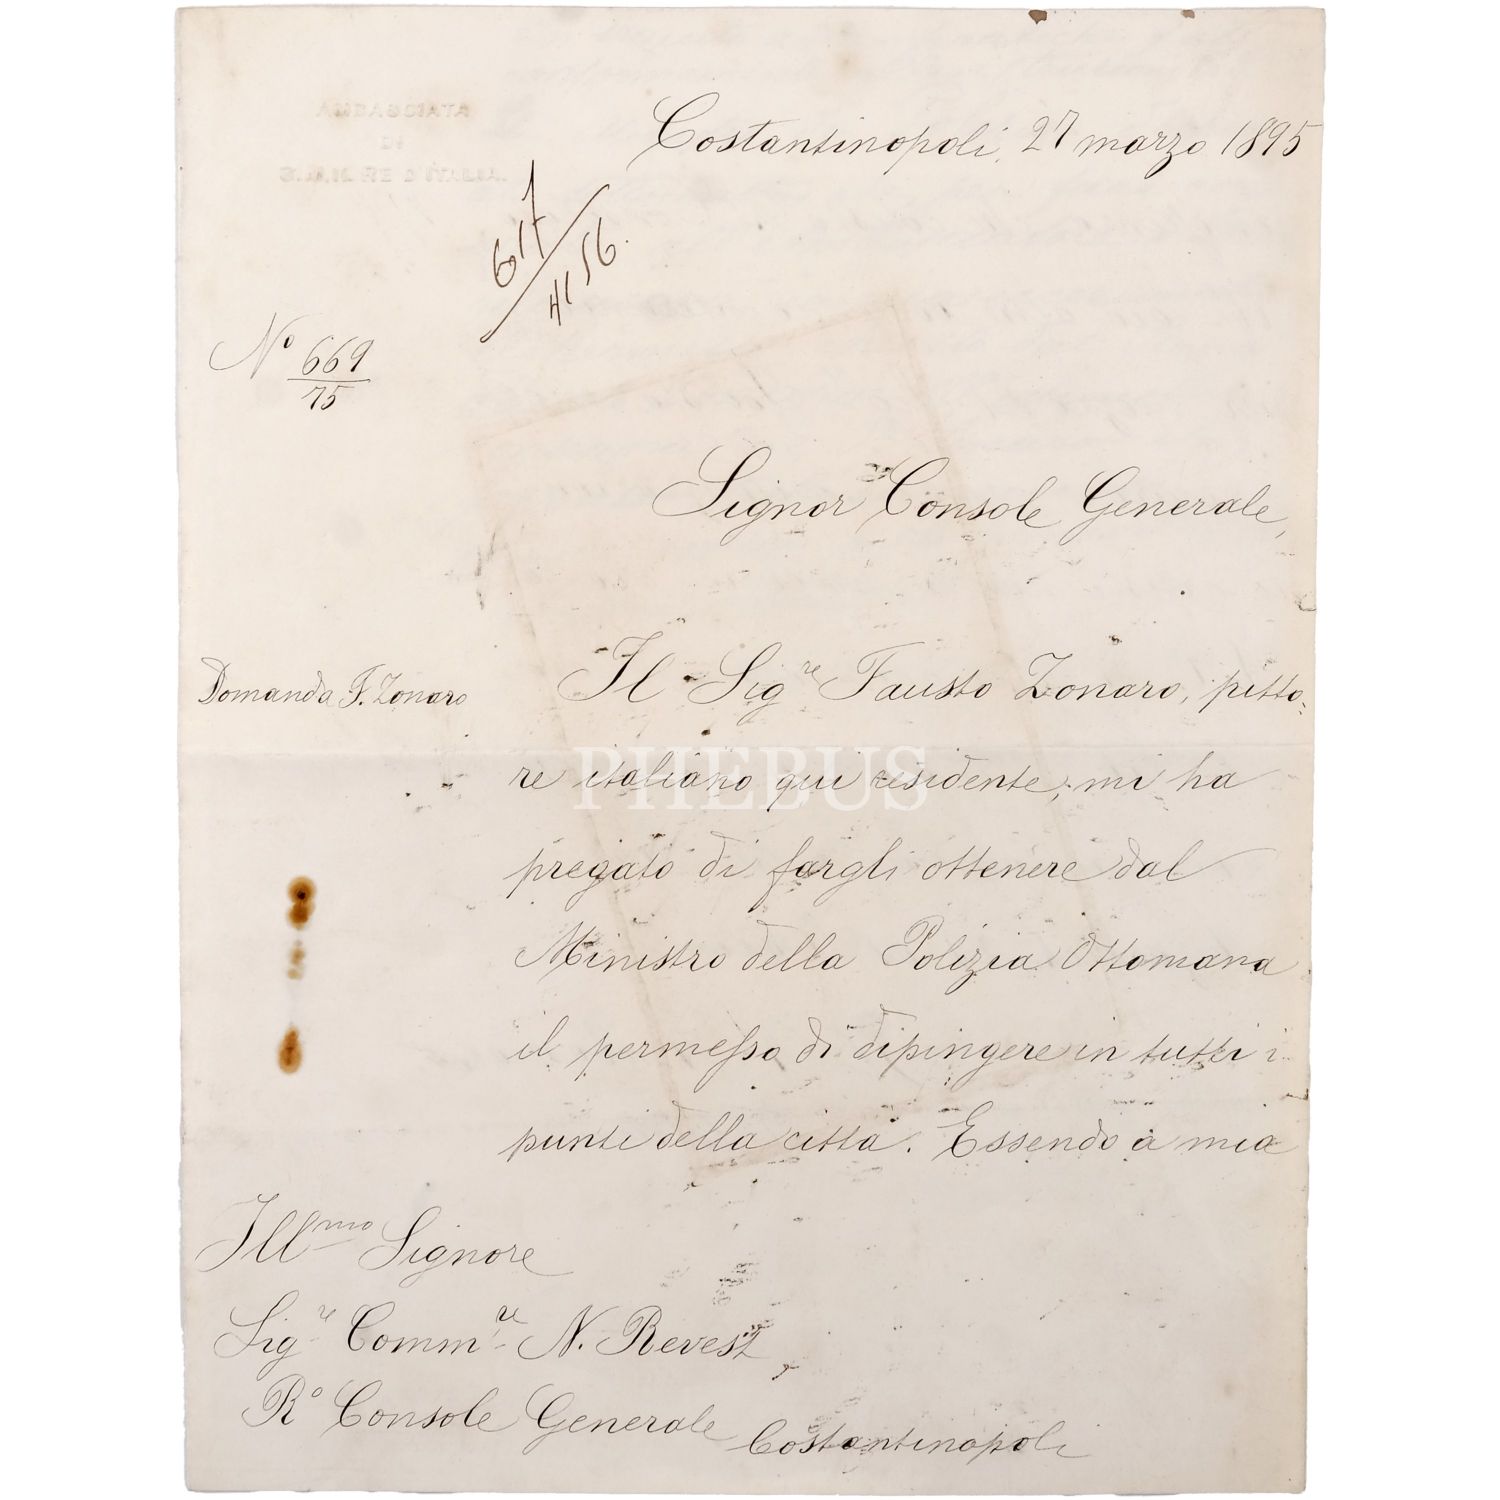 AMBASCIATA
DI
S.M. IL RE D'ITALIA.
Costantinopoli, 27 marzo 1895
617
4156.
Nº 669
75
Signor Console Generale,
Domanda F. Zonaro
Il Sigre Fausto Zonaro, pitto-
re italiano qui residente, mi ha
pregato di fargli ottenere dal
Ministro della Polizia Ottomana
il permesso di dipingere in tutti i
punti della città. Essendo a mia
Illmo Signore
Sigre Commre N. Revest,
Rº Console Generale
Costantinopoli
PHEBUS